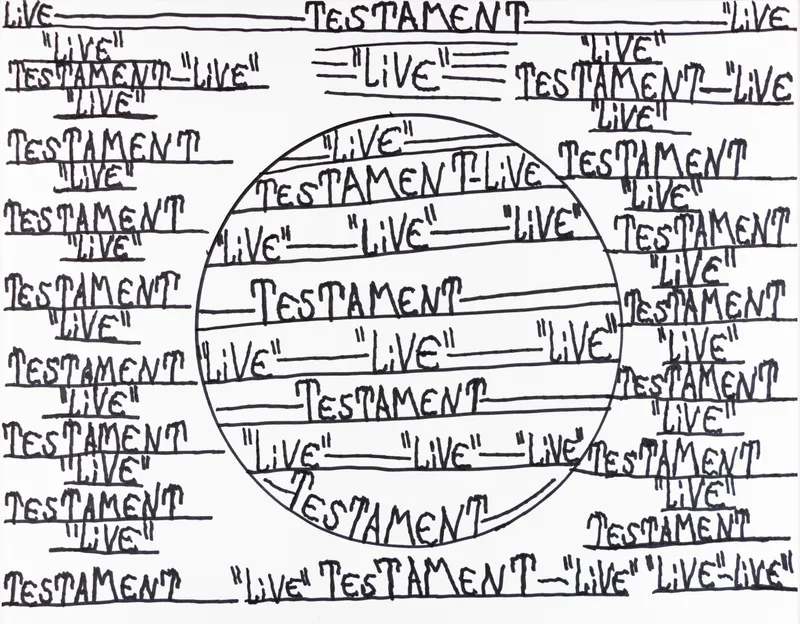 LiVE TESTAMENT "LiVE
"LiVE"
TESTAMENT-"LiVE"
"LiVE"
TESTAMENT
"LiVE"
TESTAMENT
"LiVE"
TESTAMENT
"LiVE"
TESTAMENT
"LiVE"
TESTAMENT
"LiVE"
TESTAMENT
"LiVE"
TESTAMENT
"LiVE"
"LiVE"
TESTAMENT-LiVE
"LiVE" "LiVE" "LiVE"
TESTAMENT
"LiVE" "LiVE" "LiVE"
TESTAMENT
"LiVE" "LiVE" "LiVE"
TESTAMENT
"LiVE"
TESTAMENT-"LiVE
"LiVE"
TESTAMENT
"LiVE"
TESTAMENT
"LiVE"
TESTAMENT
"LiVE"
TESTAMENT
"LiVE"
TESTAMENT
"LiVE"
TESTAMENT
"LiVE" TESTAMENT-"LiVE" "LiVE-LiVE"